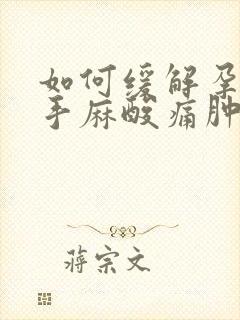 如何缓解孕
手麻酸痛肿
蒋宗文